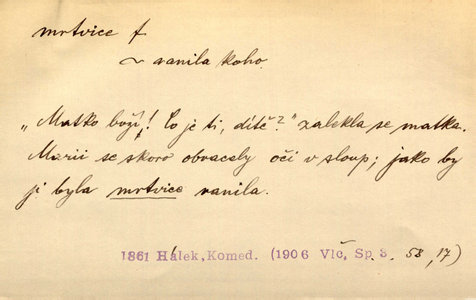 mrtvice f
~ ranila koho
„Matko boží! Co je ti, dítě?" zalekla se matka.
Marii se skoro obracely oči v sloup; jako by
ji byla mrtvice ranila.
1861 Hálek, Komed. (1906 Vlč, Sp 3. 58, 17)